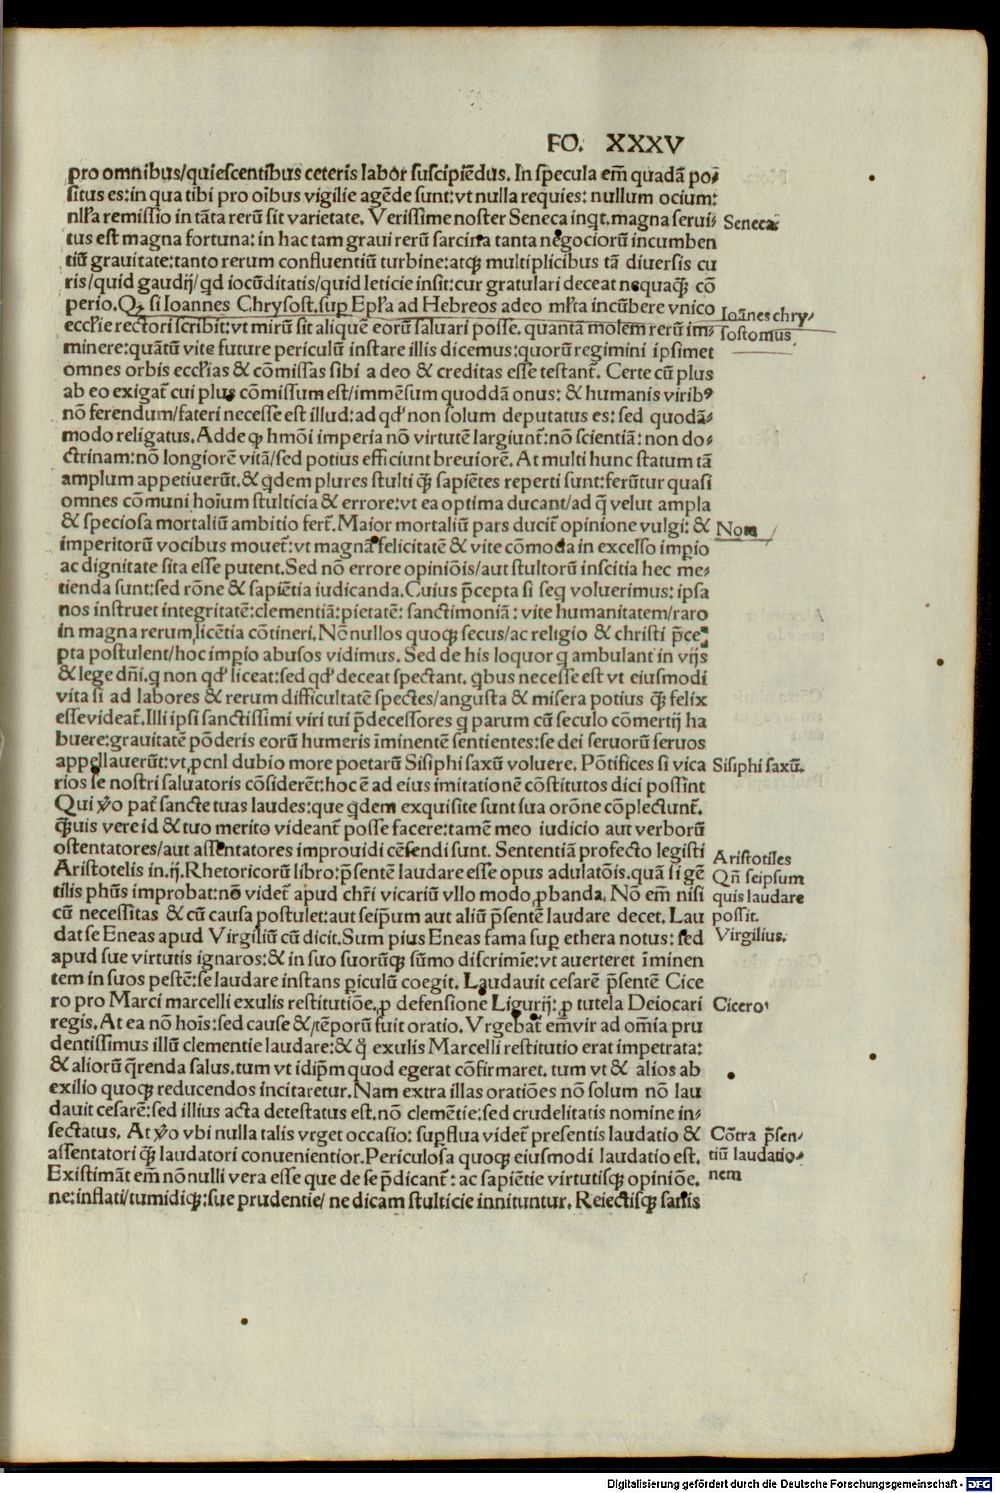 FO. XXXV
pro omnibus/quiescentibus ceteris labor suscipiẽdus. In specula em̃ quadã po⸗
situs es: in qua tibi pro oĩbus vigilie agẽde sunt: vt nulla requies: nullum ocium:
nłła remissio in tãta rerũ sit varietate. Verissime noster Seneca inq̃t. magna serui⸗
Seneca.
tus est magna fortuna: in hac tam graui rerũ sarcina tanta negociorũ incumben
tiũ grauitate: tanto rerum confluentiũ turbine: atqꝫ multiplicibus tã diuersis cu
ris/quid gaudij/qd iocũditatis/quid leticie insit: cur gratulari deceat nequaqꝫ cõ
perio. Qꝫ si Ioannes Chrysost. suꝑ Epła ad Hebreos adeo młta incũbere vnico
Ioãnes chry⸗
eccłie rectori scribit: vt mirũ sit aliquẽ eorũ saluari posse. quantã molem rerũ im⸗
sostomus
minere: quãtũ vite future periculũ instare illis dicemus: quorũ regimini ipsimet
omnes orbis eccłias & cõmissas sibi a deo & creditas esse testant̃. Certe cũ plus
ab eo exigat̃ cui plus cõmissum est/immẽsum quoddã onus: & humanis viribꝰ
nõ ferendum/fateri necesse est illud: ad qđ non solum deputatus es: sed quodã⸗
modo religatus. Adde ꝙ hmõi imperia nõ virtutẽ largiunt̃: nõ scientiã: non do⸗
ctrinam: nõ longiorẽ vitã/sed potius efficiunt breuiorẽ. At multi hunc statum tã
amplum appetiuerũt. & qdem plures stulti qꝫ̃ sapiẽtes reperti sunt: ferũtur quasi
omnes cõmuni hoĩum stulticia & errore: vt ea optima ducant/ad q̃ velut ampla
& speciosa mortaliũ ambitio fert̃. Maior mortaliũ pars ducit̃ opinione vulgi: &
Nota
imperitorũ vocibus mouet̃: vt magnã felicitatẽ & vite cõmoda in excelso imꝑio
ac dignitate sita esse putent. Sed nõ errore opiniõis/aut stultorũ inscitia hec me⸗
tienda sunt: sed rõne & sapiẽtia iudicanda. Cuius p̃cepta si seq voluerimus: ipsa
nos instruet integritatẽ: clementiã: pietatẽ: sanctimoniã: vite humanitatem/raro
in magna rerum licẽtia cõtineri. Nõnullos quoqꝫ secus/ac religio & christi p̃ce⸗
pta postulent/hoc imꝑio abusos vidimus. Sed de his loquor q ambulant in vijs
& lege dñi. q non qđ liceat: sed qđ deceat spectant. qbus necesse est vt eiusmodi
vita si ad labores & rerum difficultatẽ spectes/angusta & misera potius qꝫ̃ felix
esse videat̃. Illi ipsi sanctissimi viri tui p̃decessores q parum cũ seculo cõmertij ha
buere: grauitatẽ põderis eorũ humeris ĩminentẽ sentientes: se dei seruorũ seruos
appellauerũt: vt ꝓcul dubio more poetarũ Sisiphi saxũ voluere. Põtifices si vica
Sisiphi saxũ.
rios se nostri saluatoris cõsiderẽt: hoc ẽ ad eius imitationẽ cõstitutos dici possint
Qui v̊o pat̃ sancte tuas laudes: que qdem exquisite sunt sua orõne cõplectunt̃.
qꝫ̃uis vere id & tuo merito videant̃ posse facere: tamẽ meo iudicio aut verborũ
ostentatores/aut assentatores improuidi cẽsendi sunt. Sententiã profecto legisti
Aristotelis in .ij. Rhetoricorũ libro: p̃sentẽ laudare esse opus adulatõis. quã si gẽ
Aristotiles
tilis phũs improbat: nõ videt̃ apud chr̃i vicariũ vllo modo ꝓbanda. Nõ em̃ nisi
Qñ seipsum
quis laudare
cũ necessitas & cũ causa postulet: aut seip̃um aut aliũ p̃sentẽ laudare decet. Lau
possit.
dat se Eneas apud Virgiliũ cũ dicit. Sum pius Eneas fama suꝑ ethera notus: sed
Virgilius.
apud sue virtutis ignaros: & in suo suorũqꝫ sũmo discrimĩe: vt auerteret ĩminen
tem in suos pestẽ: se laudare instans ꝑiculũ coegit. Laudauit cesarẽ p̃sentẽ Cice
ro pro Marci marcelli exulis restitutiõe. ꝓ defensione Ligurij: ꝓ tutela Deiocari
Cicero
regis. At ea nõ hoĩs: sed cause &/tẽporũ fuit oratio. Vrgebat̃ em̃ vir ad om̃ia pru
dentissimus illũ clementie laudare: & q̃ exulis Marcelli restitutio erat impetrata:
& aliorũ q̃renda salus. tum vt idip̃m quod egerat cõfirmaret. tum vt & alios ab
exilio quoqꝫ reducendos incitaretur. Nam extra illas oratiões nõ solum nõ lau
dauit cesarẽ: sed illius acta detestatus est. nõ clemẽtie: sed crudelitatis nomine in⸗
sectatus. At v̊o vbi nulla talis vrget occasio: suꝑflua videt̃ presentis laudatio &
Cõtra p̃sen⸗
assentatori qꝫ̃ laudatori conuenientior. Periculosa quoqꝫ eiusmodi laudatio est.
tiũ laudatio⸗
Existimãt em̃ nõnulli vera esse que de se p̃dicant̃: ac sapiẽtie virtutisqꝫ opiniõe.
nem
ne: inflati/tumidiqꝫ: sue prudentie/ ne dicam stulticie innituntur. Reiectisqꝫ satris
Digitalisierung gefördert durch die Deutsche Forschungsgemeinschaft - DFG